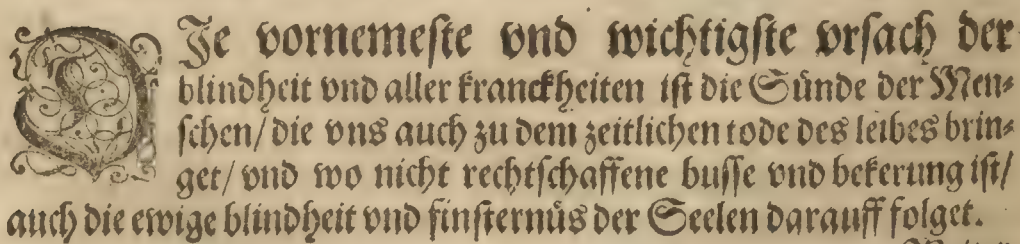 DJe vornemeſte vnd wichtigſte vrſach der
blindheit vnd aller kranckheiten iſt die Sünde der Men⸗
ſchen/ die vns auch zu dem zeitlichen tode des leibes brin⸗
get/ vnd wo nicht rechtſchaffene buſſe vnd bekerung iſt/
auch die ewige blindheit vnd finſternüs der Seelen darauff folget.